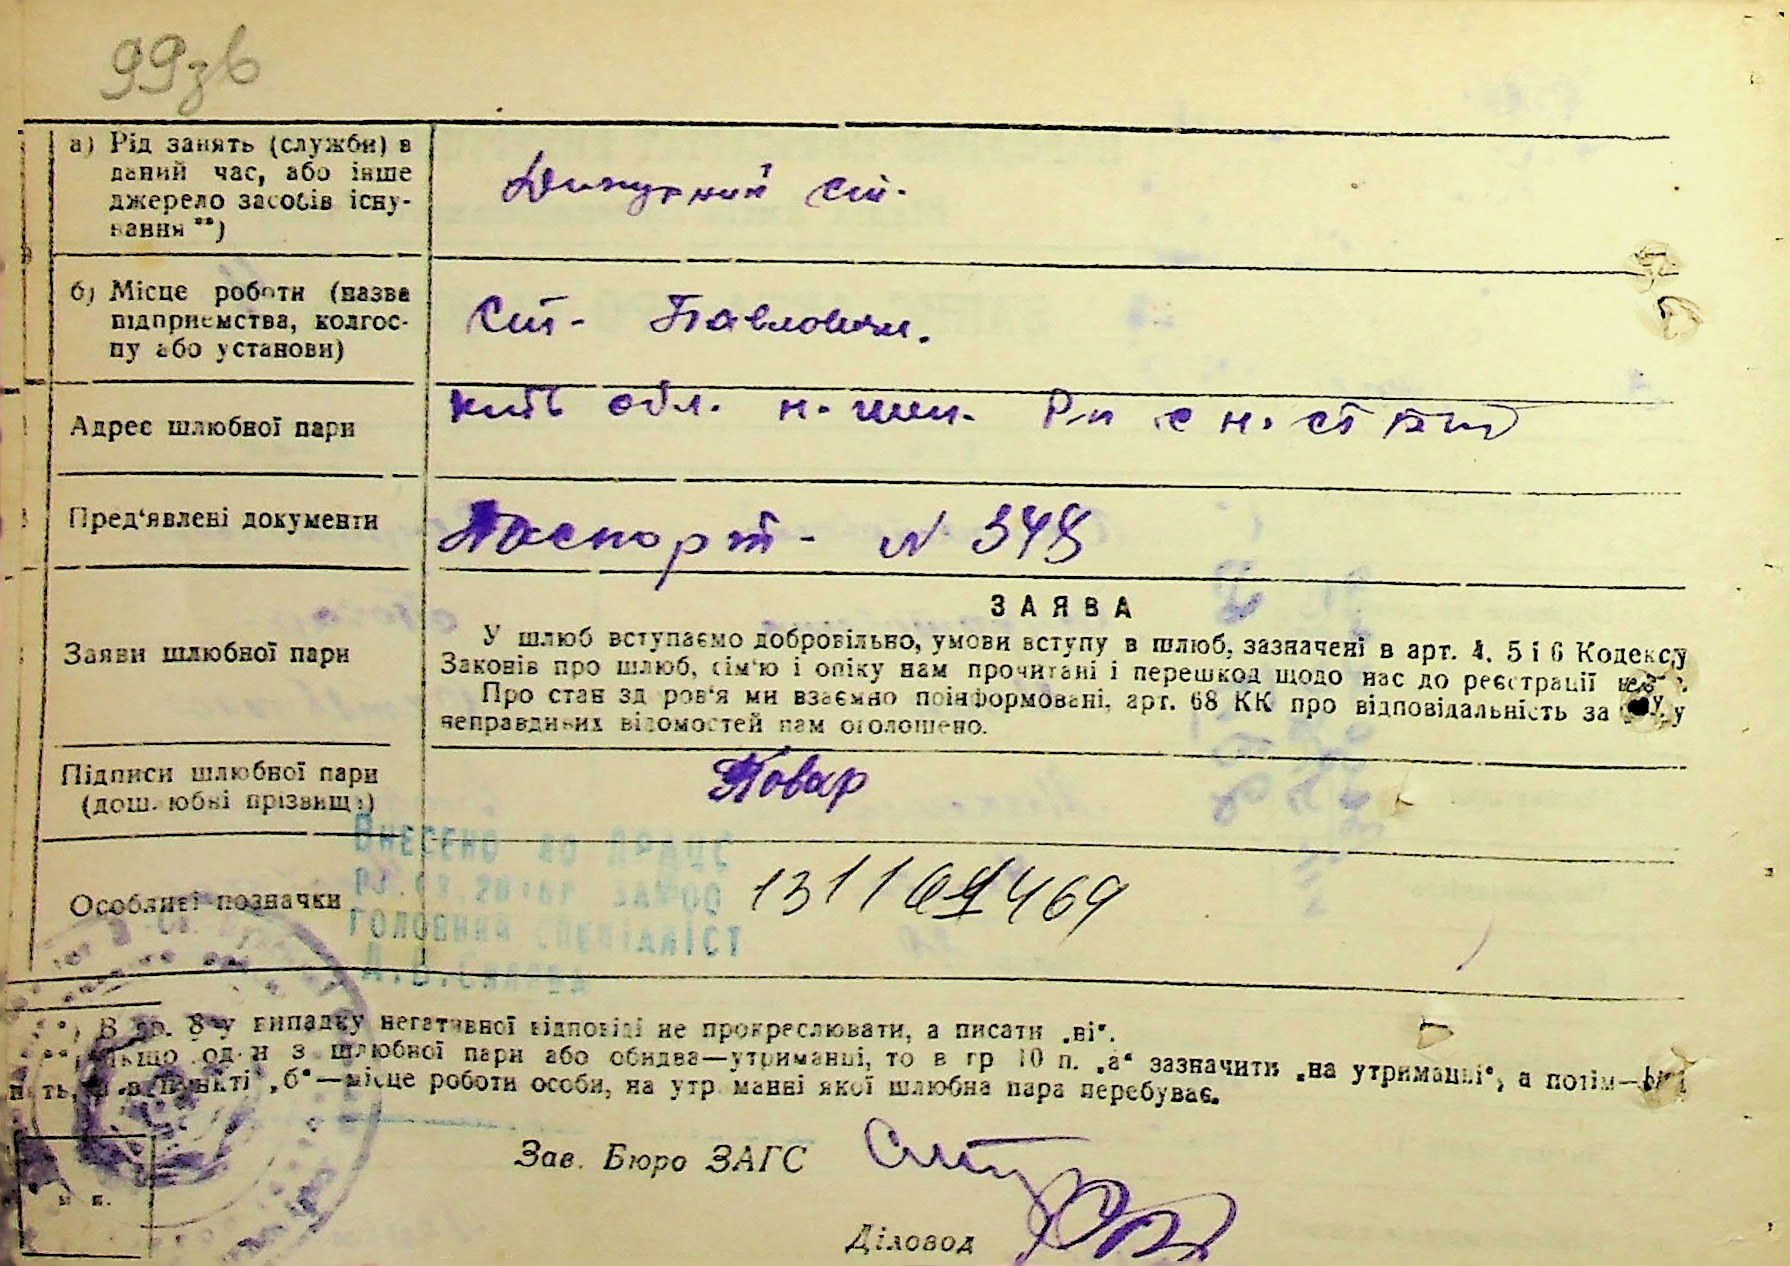 99зв
а) Рід занять (служби) в
даний час, або інше
джерело засобів існу-
вання **)
Дижурний ст.
б) Місце роботи (назва
підприємства, колгос-
пу або установи)
ст-
Адрес шлюбної пари
обл.
Пред'явлені документи
Паспорт - № 348
Заяви шлюбної пари
ЗАЯВА
У шлюб вступаємо добровільно, умови вступу в шлюб, зазначені в арт. 4, 5 і 6 Кодексу
Законів про шлюб, сім'ю і опіку нам прочитані і перешкод щодо нас до реєстрації
Про стан здоров'я ми взаємно поінформовані, арт. 68 КК про відповідальність за
неправдивих відомостей нам оголошено.
Підписи шлюбної пари
(дошлюбні прізвища)
Повар
ВНЕСЕНО ДО ДРАЦС
ГОЛОВНИЙ СПЕЦІАЛІСТ
Особливі позначки
*) В гр. 8 у випадку негативної відповіді не прокреслювати, а писати „ні“.
**) Якщо один з шлюбної пари або обидва—утриманці, то в гр 10 п. „а“ зазначити „на утриманні“, а потім—
в пункті „б“—місце роботи особи, на утриманні якої шлюбна пара перебуває.
Зав. Бюро ЗАГС
м. п.
Діловод